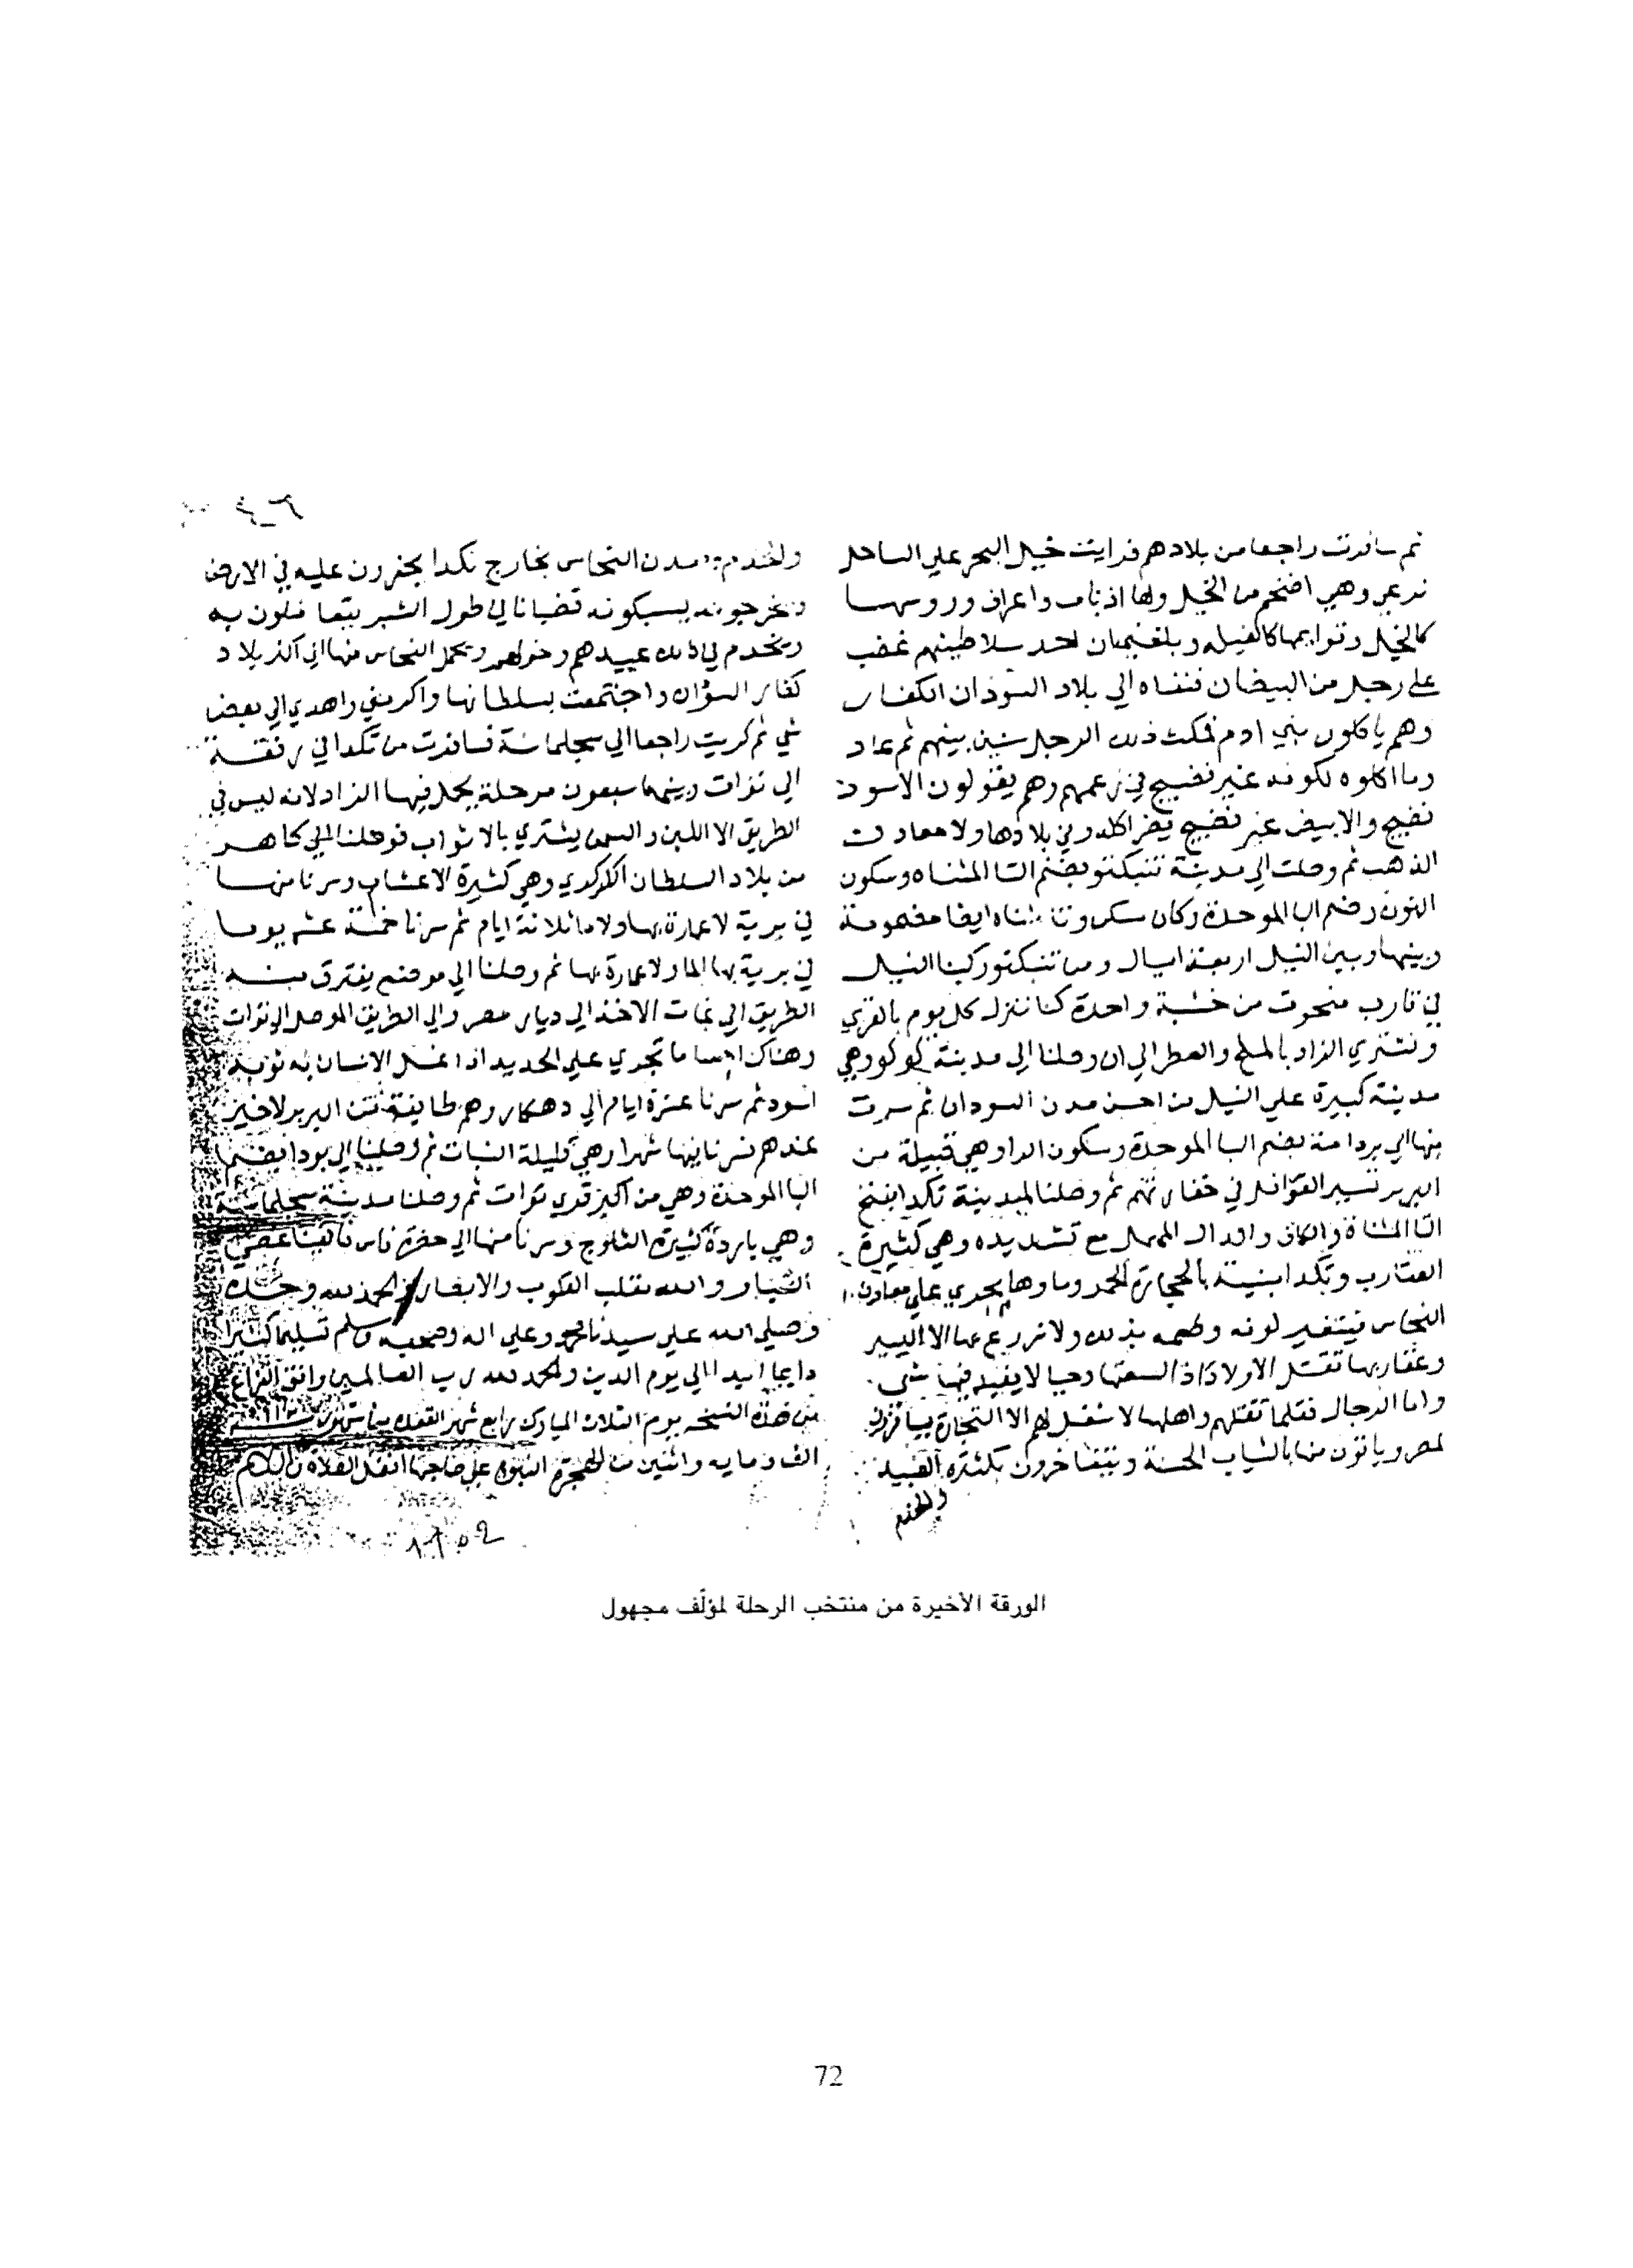 ثم سافرت راجعا من بلادهم فرايت خيل البحر علي الساحل
ترعي وهي اضخم من الخيل ولها اذناب واعراف وروسها
كالخيل وقوايمها كالفيله وبلغني ان احد سلاطينهم غضب
على رجل من البيضان فنفاه الي بلاد السودان الكفار
وهم ياكلون بني ادم فمكث ذلك الرجل سنين بينهم ثم عاد
وما اكلوه لكونه غير نضيج في زعمهم وهم يقولون الاسود
نضيج والابيض غير نضيج يضر اكله وفي بلادها ولا معادن
الذهب ثم وصلت الي مدينة تنبكتو بضم التا المثناه وسكون
النون وضم البا الموحدة وكاف سكر وتا مثناه ايضا مضمومة
وبينها وبين النيل اربعة اميال ومن تنبكتو ركبنا النيل
في قارب منحوت من خشبة واحدة كنا ننزل كل يوم بالقري
ونشتري الزاد بالملح والعطر الي ان وصلنا الي مدينة كوكو وهي
مدينة كبيرة علي النيل من احسن مدن السودان ثم سرت
منها الي بردامة بضم البا الموحدة وسكون الرا وهي قبيلة من
البربر تسير القوافل في خفارتهم ثم وصلنا لمدينة تكدا بفتح
التا المثناة والكاف والدال المهمل مع تشديده وهي كثيرة
العقارب وتكدا ابنية بالحجارة الحمر وماوها يجري علي معادن
النحاس فيتغير لونه وطعمه بذلك ولا زرع بها الا اليسير
وعقاربها تقتل الاولاد اذا لسعتها وحيا لا يفيد فيها شي
واما الرجال فقلما تقتلهم واهلها لا شغل لهم الا التجارة يسافرون
لمصر وياتون منها بالثياب الحسنة ويتفاخرون بكثرة العبيد
والخدم
والخدم معدن النحاس بخارج تكدا يحفرون عليه في الارض
ويخرجونه يسبكونه قضبانا في طول الشبر يتعاملون به
ويخدم في ذلك عبيدهم وخولهم ويحمل النحاس منها الي اكثر بلاد
كفار السودان واجتمعت بسلطانها واكرمني واهدي الي بعض
شي ثم كريت راجعا الي سجلماسة فسافرت من تكدا في رفقة
الي توات وبينهما سبعون مرحلة يحمل فيها الزاد لانه ليس في
الطريق الا اللبن والسمن يشتري بالاثواب فوصلنا الي كاهر
من بلاد السلطان الكركري وهي كثيرة الاعشاب وسرنا منها
في برية لا عمارة بها ولا ما ثلاثة ايام ثم سرنا خمسة عشر يوما
في برية بها الما ولا عمارة بها ثم وصلنا الي موضع يفترق منه
الطريق الي غات الاخذ الي ديار مصر والي الطريق الموصل الي توات
وهناك ما تجري علي الحديد اذا غسل الانسان به ثوبه
اسود ثم سرنا عشرة ايام الي دهكار وهم طايفة من البربر لا خير
عندهم فسرنا فيها شهرا وهي قليلة النبات ثم وصلنا الي بودا بضم
البا الموحدة وهي من اكبر قري توات ثم وصلنا مدينة سجلماسة
وهي باردة كثيرة الثلوج وسرنا منها الي حضرة فاس فالقينا عصي
التسيار والله مقلب القلوب والابصار والحمد لله وحده
وصلي الله علي سيدنا محمد وعلي اله وصحبه وسلم تسليما كثيرا
دايما ابدا الي يوم الدين والحمد لله رب العالمين وافق الفراغ
من هذه النسخه يوم الثلاث المبارك رابع شهر القعده
الف ومايه واثنين من الهجرة النبوية علي صاحبها افضل الصلاة والسلام
الورقة الأخيرة من منتخب الرحلة لمؤلّف مجهول
72